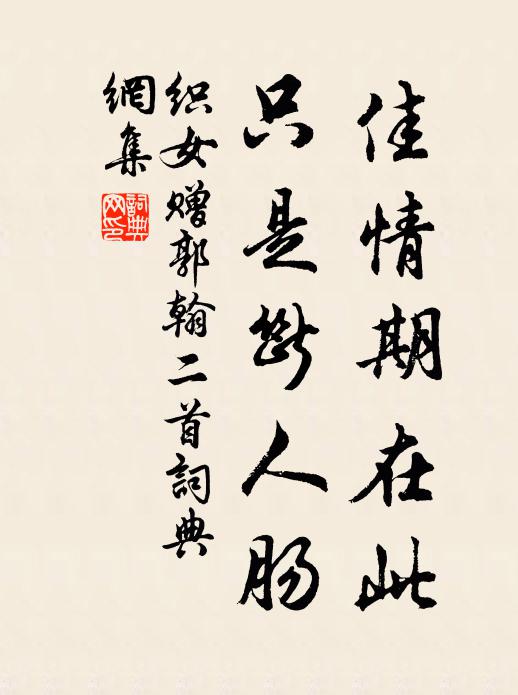 佳情期在此
只是斷人肠
织女赠郭翰二首詞典
網集
詞典
网印